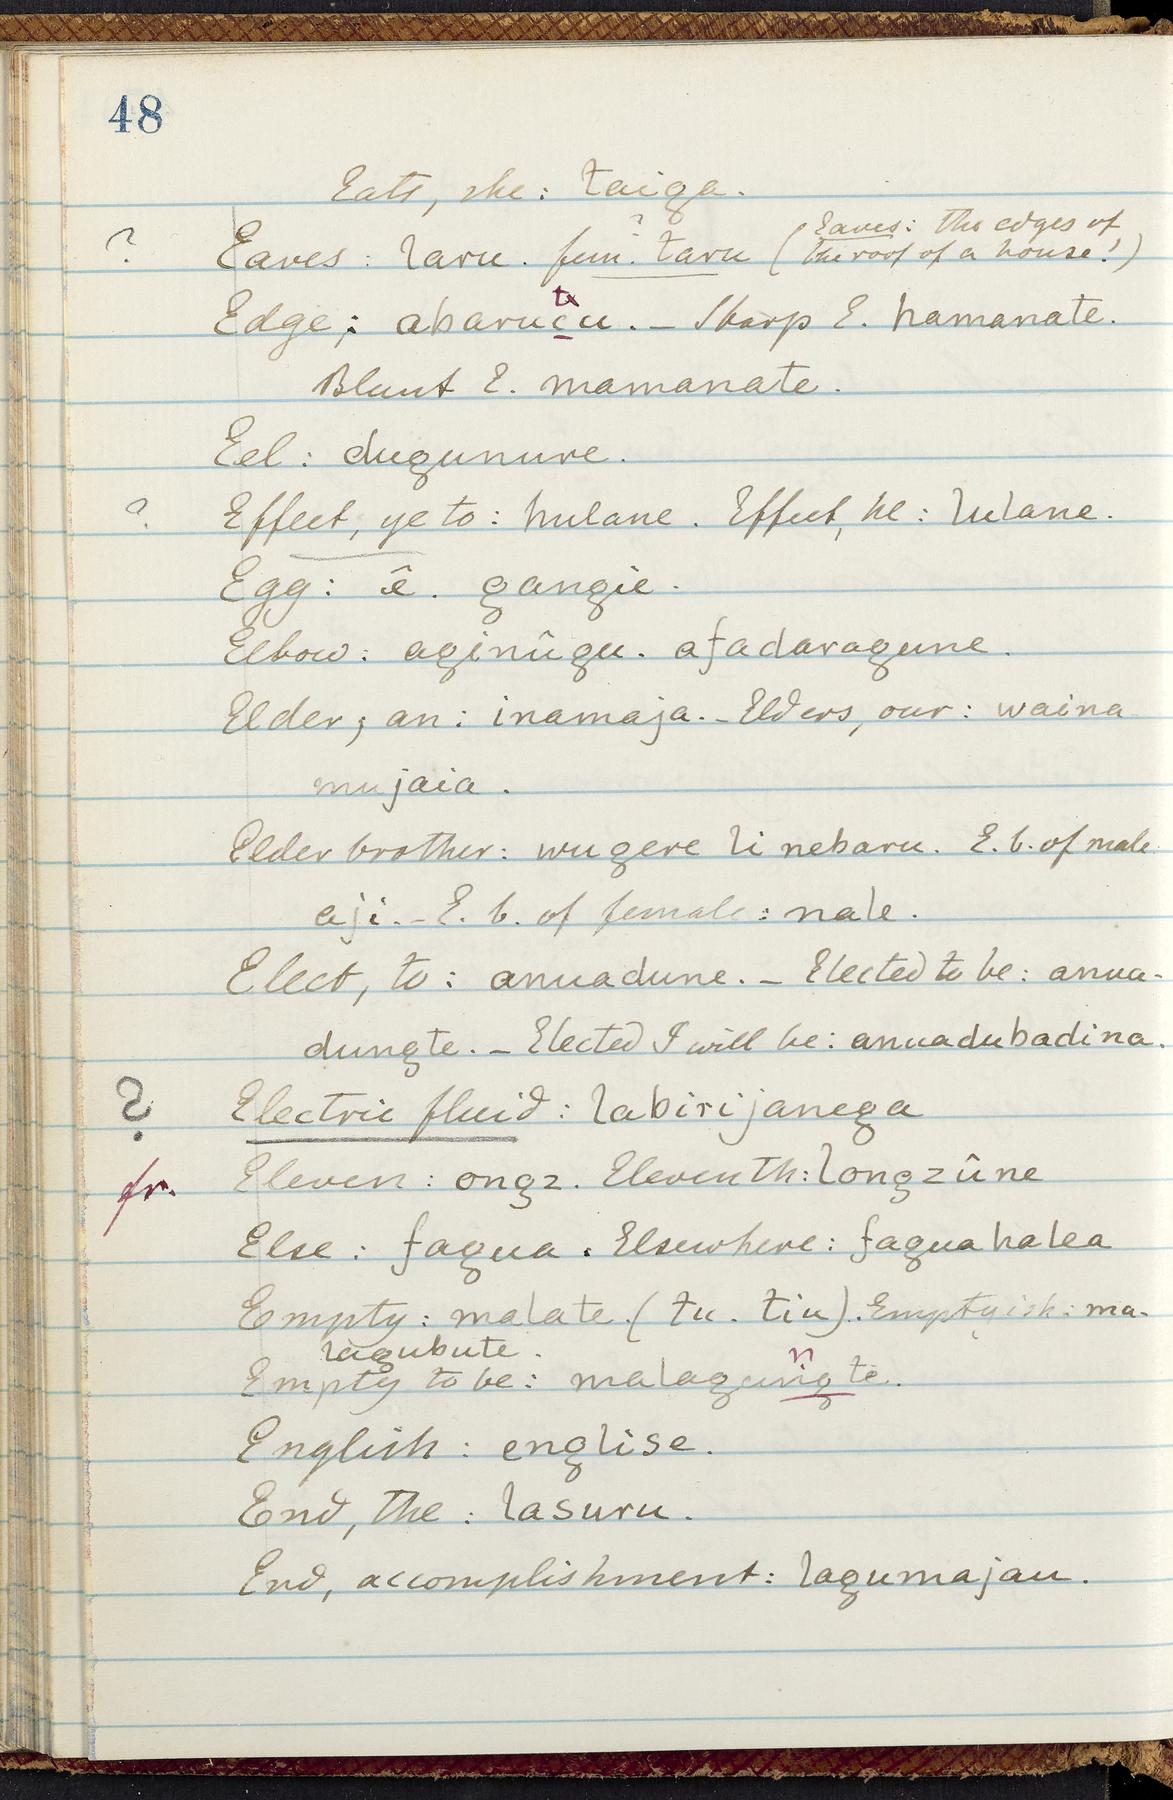 48
Eats, she: taiga.
? Eaves: laru. fem. ? taru (Eaves: the edges of
the roof of a house!)
Edge; abarucu. tx – Sharp E. hamanate.
Blunt E. mamanate.
Eel: dugunure.
? Effect, ye to: hulane. Effect, he: lulane.
Egg: ê. gangie.
Elbow: aginûgu. afadaragune.
Elder, an: inamaja. – Elders, our: waina
mujaia.
Elder brother: wugere li nebaru. E. b. of male
aji. – E. b. of female: nale.
Elect, to: anuadune. – Elected to be: anua-
dungte. – Elected I will be: anuadubadina.
? Electric fluid: labirijanega
fr. Eleven: ongz. Eleventh: longzûne
Else: fagua. Elsewhere: fagua halea
Empty: malate (tu. tiu). Empty is h: ma-
lagubute.
Empty to be: malagungte. n
English: englise.
End, the: lasuru.
End, accomplishment: lagumajau.